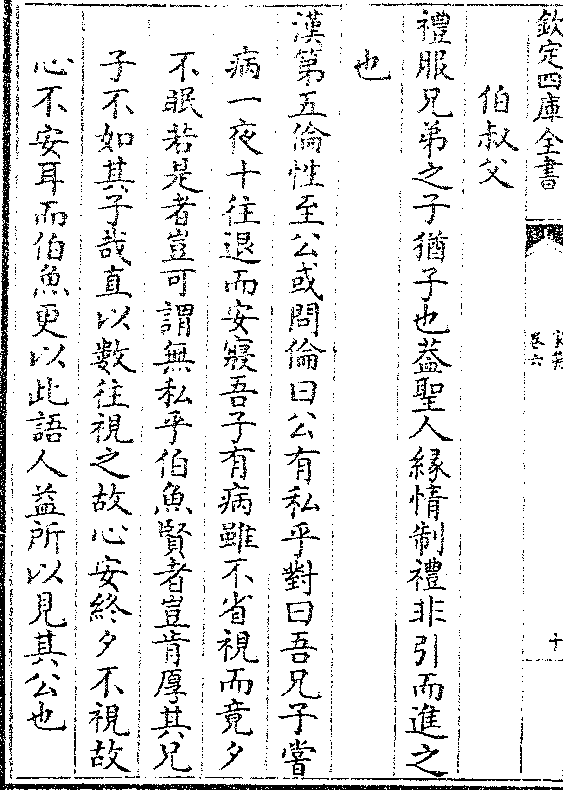 欽定四庫全書
卷六
十
伯叔父
禮服兄弟之子猶子也葢聖人緣情制禮非引而進之
也
漢第五倫性至公或問倫曰公有私乎對曰吾兄子嘗
病一夜十往退而安寢吾子有病雖不省視而竟夕
不眠若是者豈可謂無私乎伯魚賢者豈肯厚其兄
子不如其子哉直以數往視之故心安終夕不視故
心不安耳而伯魚更以此語人益所以見其公也